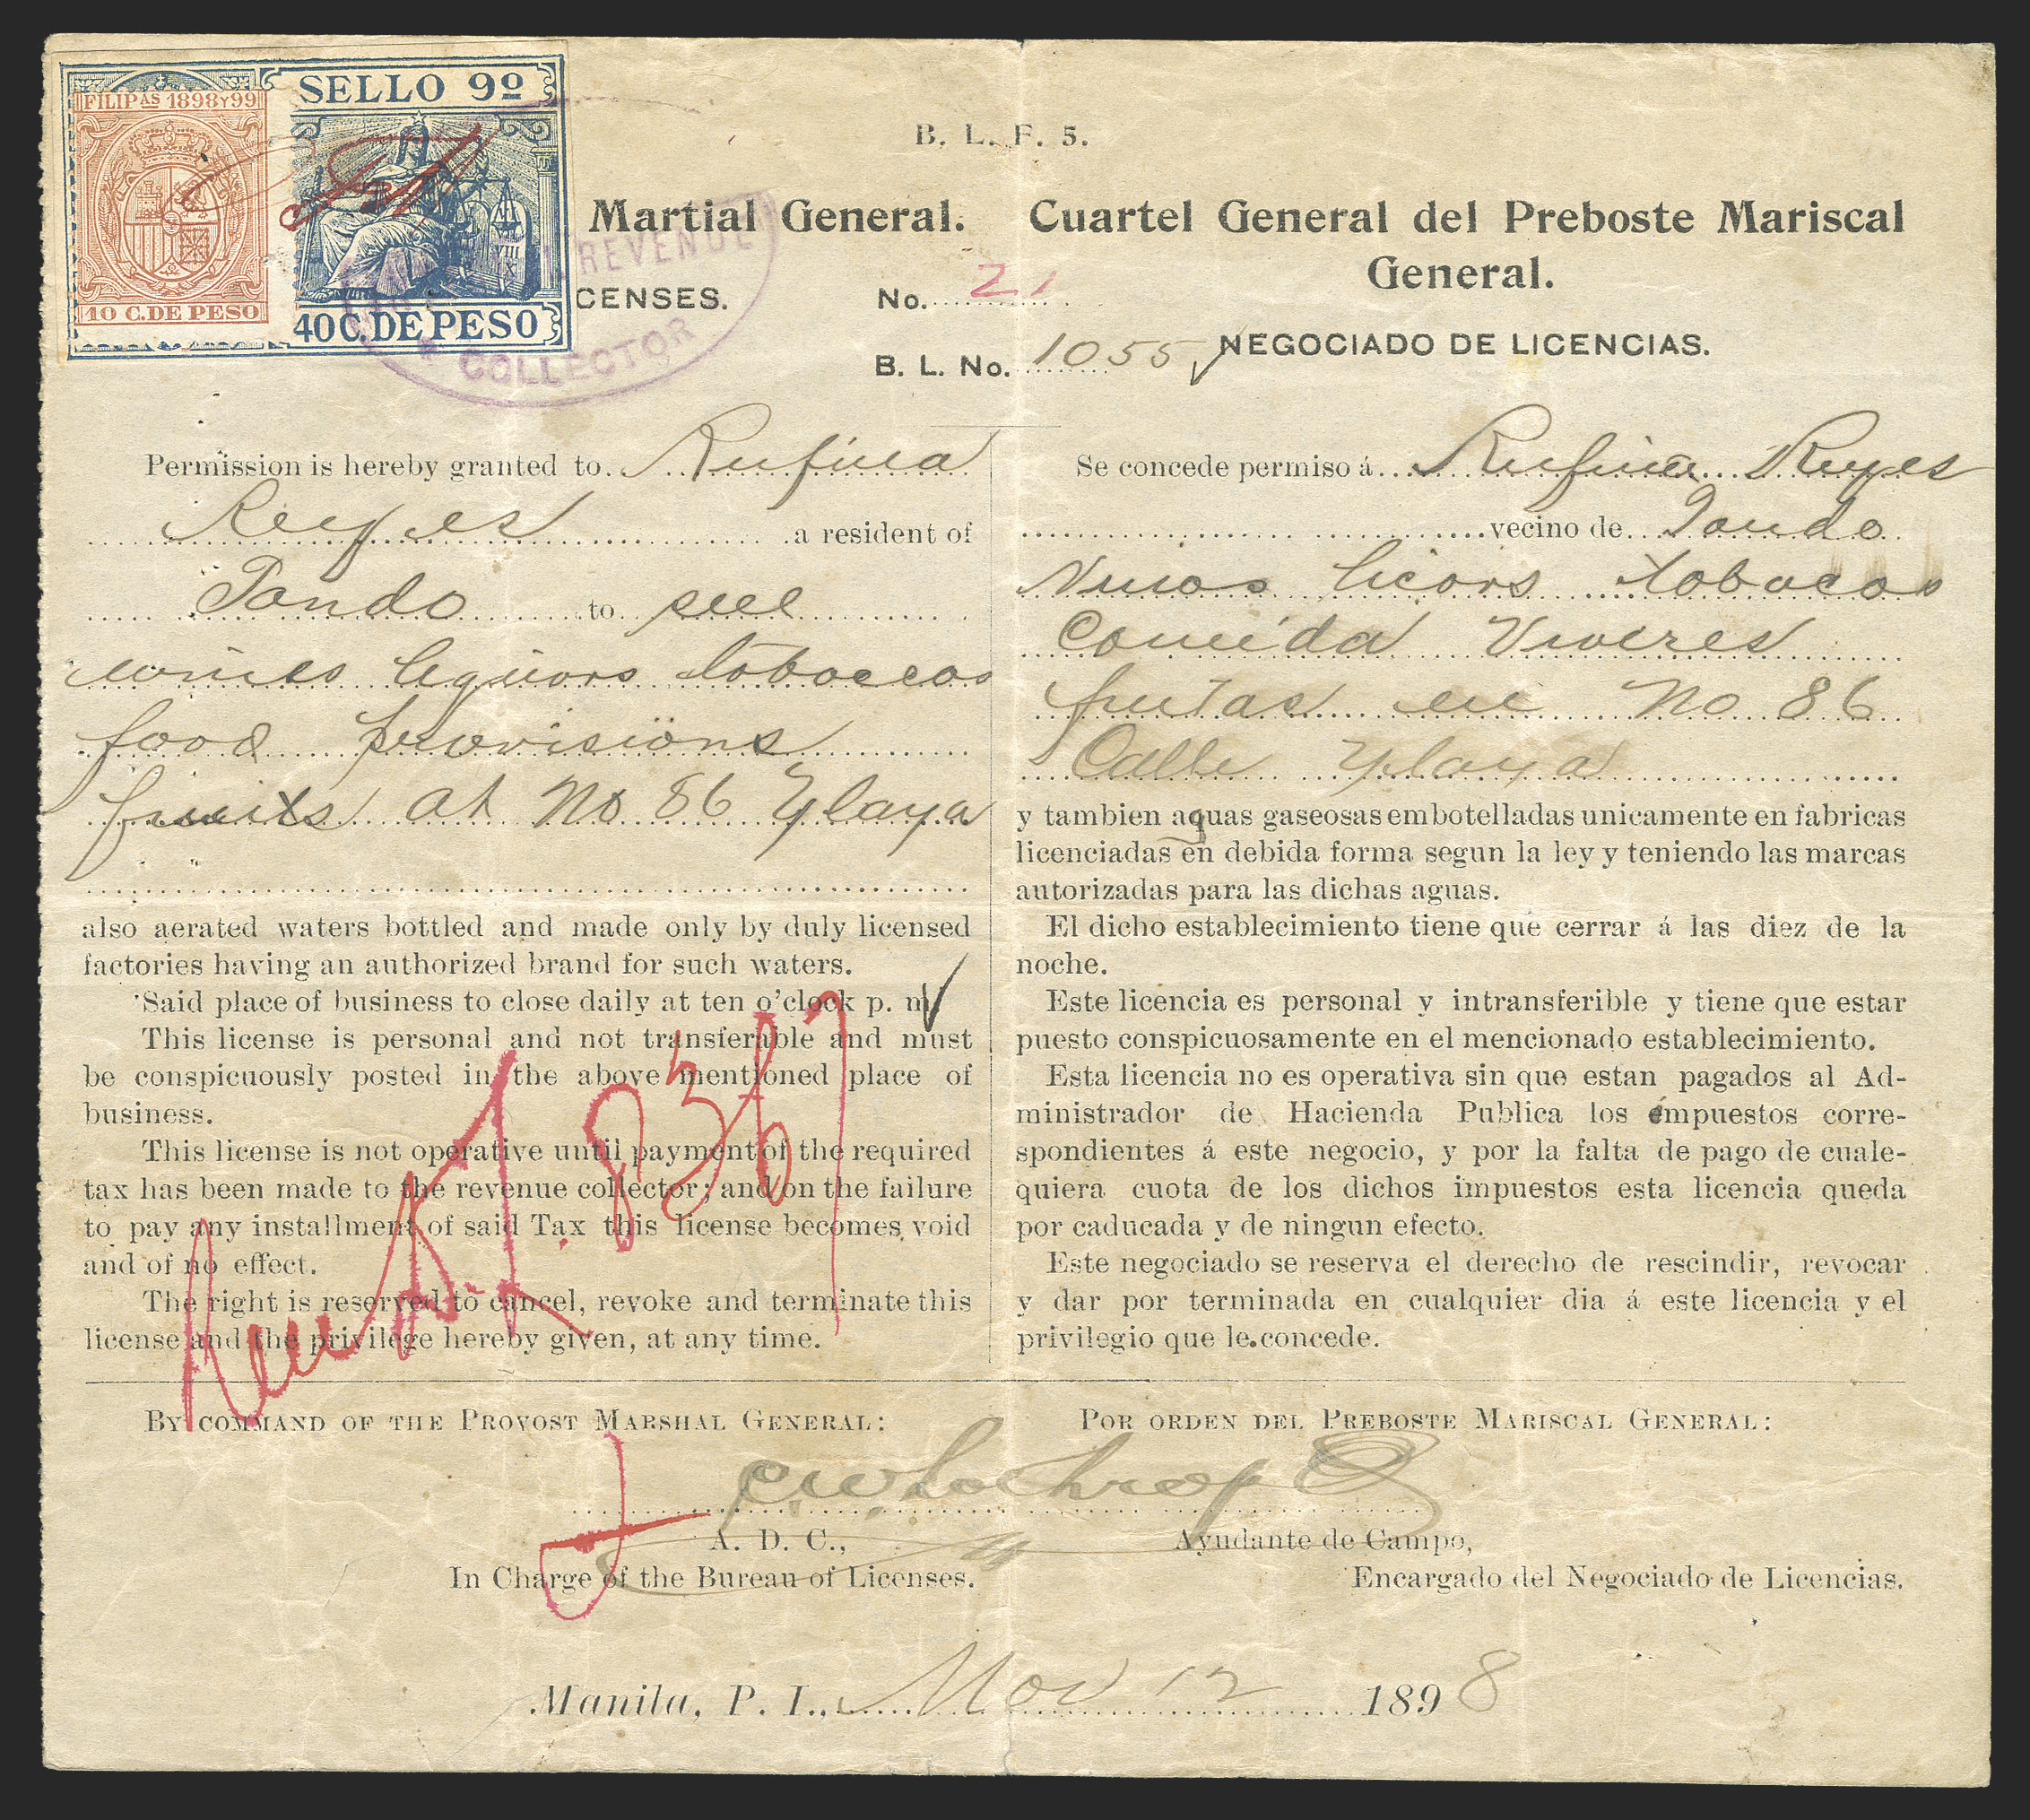 FILIPAS 1898Y99
10 C. DE PESO
SELLO 9º
VIII
X
40 C. DE PESO
REVENUE
COLLECTOR
B. L. F. 5.
Martial General.
CENSES.
No. 21
B. L. No. 1055
Permission is hereby granted to Rufina
Reyes a resident of
Tondo to sell
wines liquors tobaccos
food provisions
fruits at No 86 Ylaya
also aerated waters bottled and made only by duly licensed
factories having an authorized brand for such waters.
Said place of business to close daily at ten o'clock p. m
This license is personal and not transferable and must
be conspicuously posted in the above mentioned place of
business.
This license is not operative until payment of the required
tax has been made to the revenue collector; and on the failure
to pay any installment of said Tax this license becomes void
and of no effect.
The right is reserved to cancel, revoke and terminate this
license and the privilege hereby given, at any time.
Cuartel General del Preboste Mariscal
General.
NEGOCIADO DE LICENCIAS.
Se concede permiso á Rufina Reyes
vecino de Tondo
Vinos licors tobacos
Comida Viveres
frutas en No 86
Calle Ylaya
y tambien aguas gaseosas embotelladas unicamente en fabricas
licenciadas en debida forma segun la ley y teniendo las marcas
autorizadas para las dichas aguas.
El dicho establecimiento tiene que cerrar á las diez de la
noche.
Este licencia es personal y intransferible y tiene que estar
puesto conspicuosamente en el mencionado establecimiento.
Esta licencia no es operativa sin que estan pagados al Ad-
ministrador de Hacienda Publica los impuestos corre-
spondientes á este negocio, y por la falta de pago de cuale-
quiera cuota de los dichos impuestos esta licencia queda
por caducada y de ningun efecto.
Este negociado se reserva el derecho de rescindir, revocar
y dar por terminada en cualquier dia á este licencia y el
privilegio que le concede.
BY COMMAND OF THE PROVOST MARSHAL GENERAL:
POR ORDEN DEL PREBOSTE MARISCAL GENERAL:
C W Lothrop
A. D. C.,
In Charge of the Bureau of Licenses.
Ayudante de Campo,
Encargado del Negociado de Licencias.
Manila, P. I., Nov 12 1898